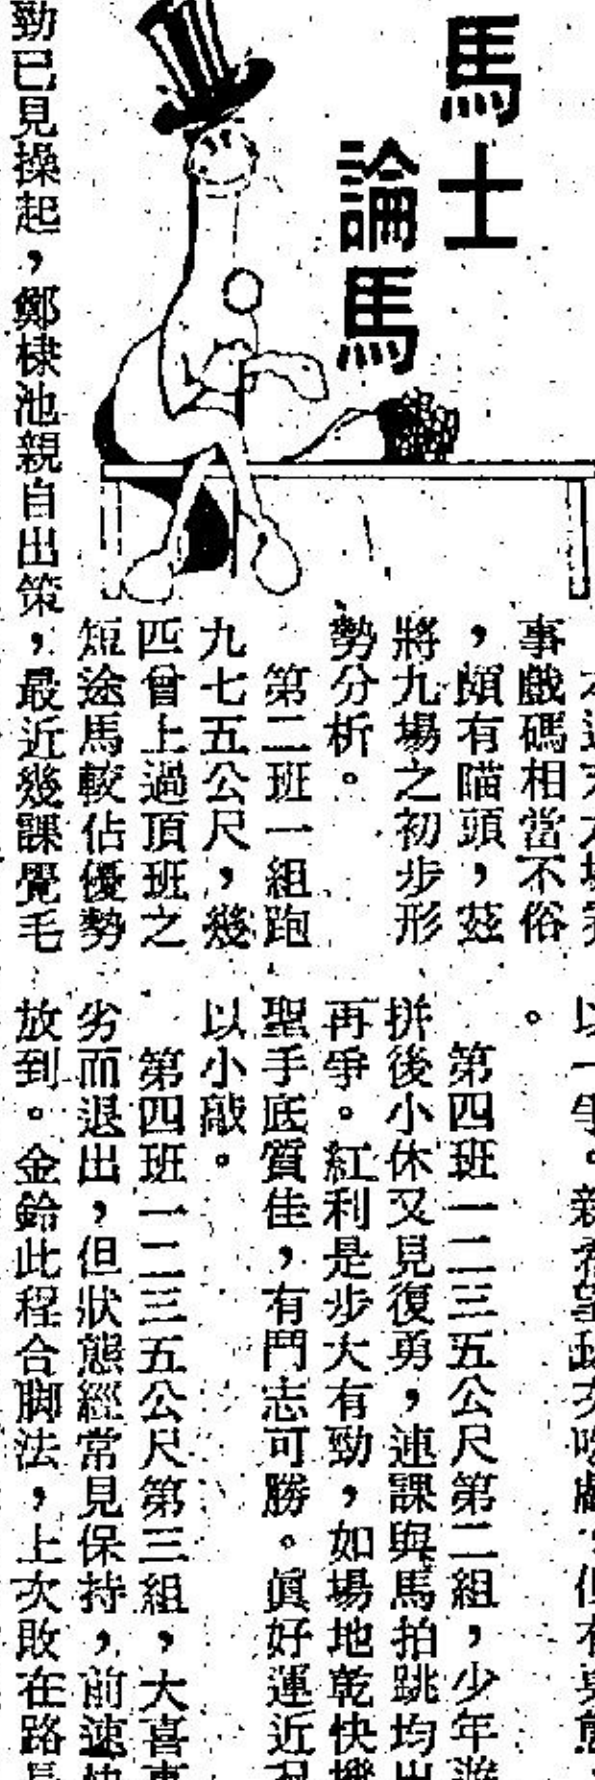 馬士
論馬
事戲碼相當不俗
，頗有瞄頭，茲
將九場之初步形
勢分析。
第二班一組跑
九七五公尺，幾
匹曾上過頂班之
短途馬較佔優勢
勁已見操起，鄭棣池親自出策，最近幾課覺毛
。
第四班一二三五公尺第二組，少年
拼後小休又見復勇，連課與馬拍跳均出
再爭。紅利是步大有勁，如場地乾快機
聖手底質佳，有鬥志可勝。眞好運近
以小敲。
第四班一二三五公尺第三組，大喜
劣而退出，但狀態經常見保持，前速快
放到。金鈴此程合脚法，上次敗在路